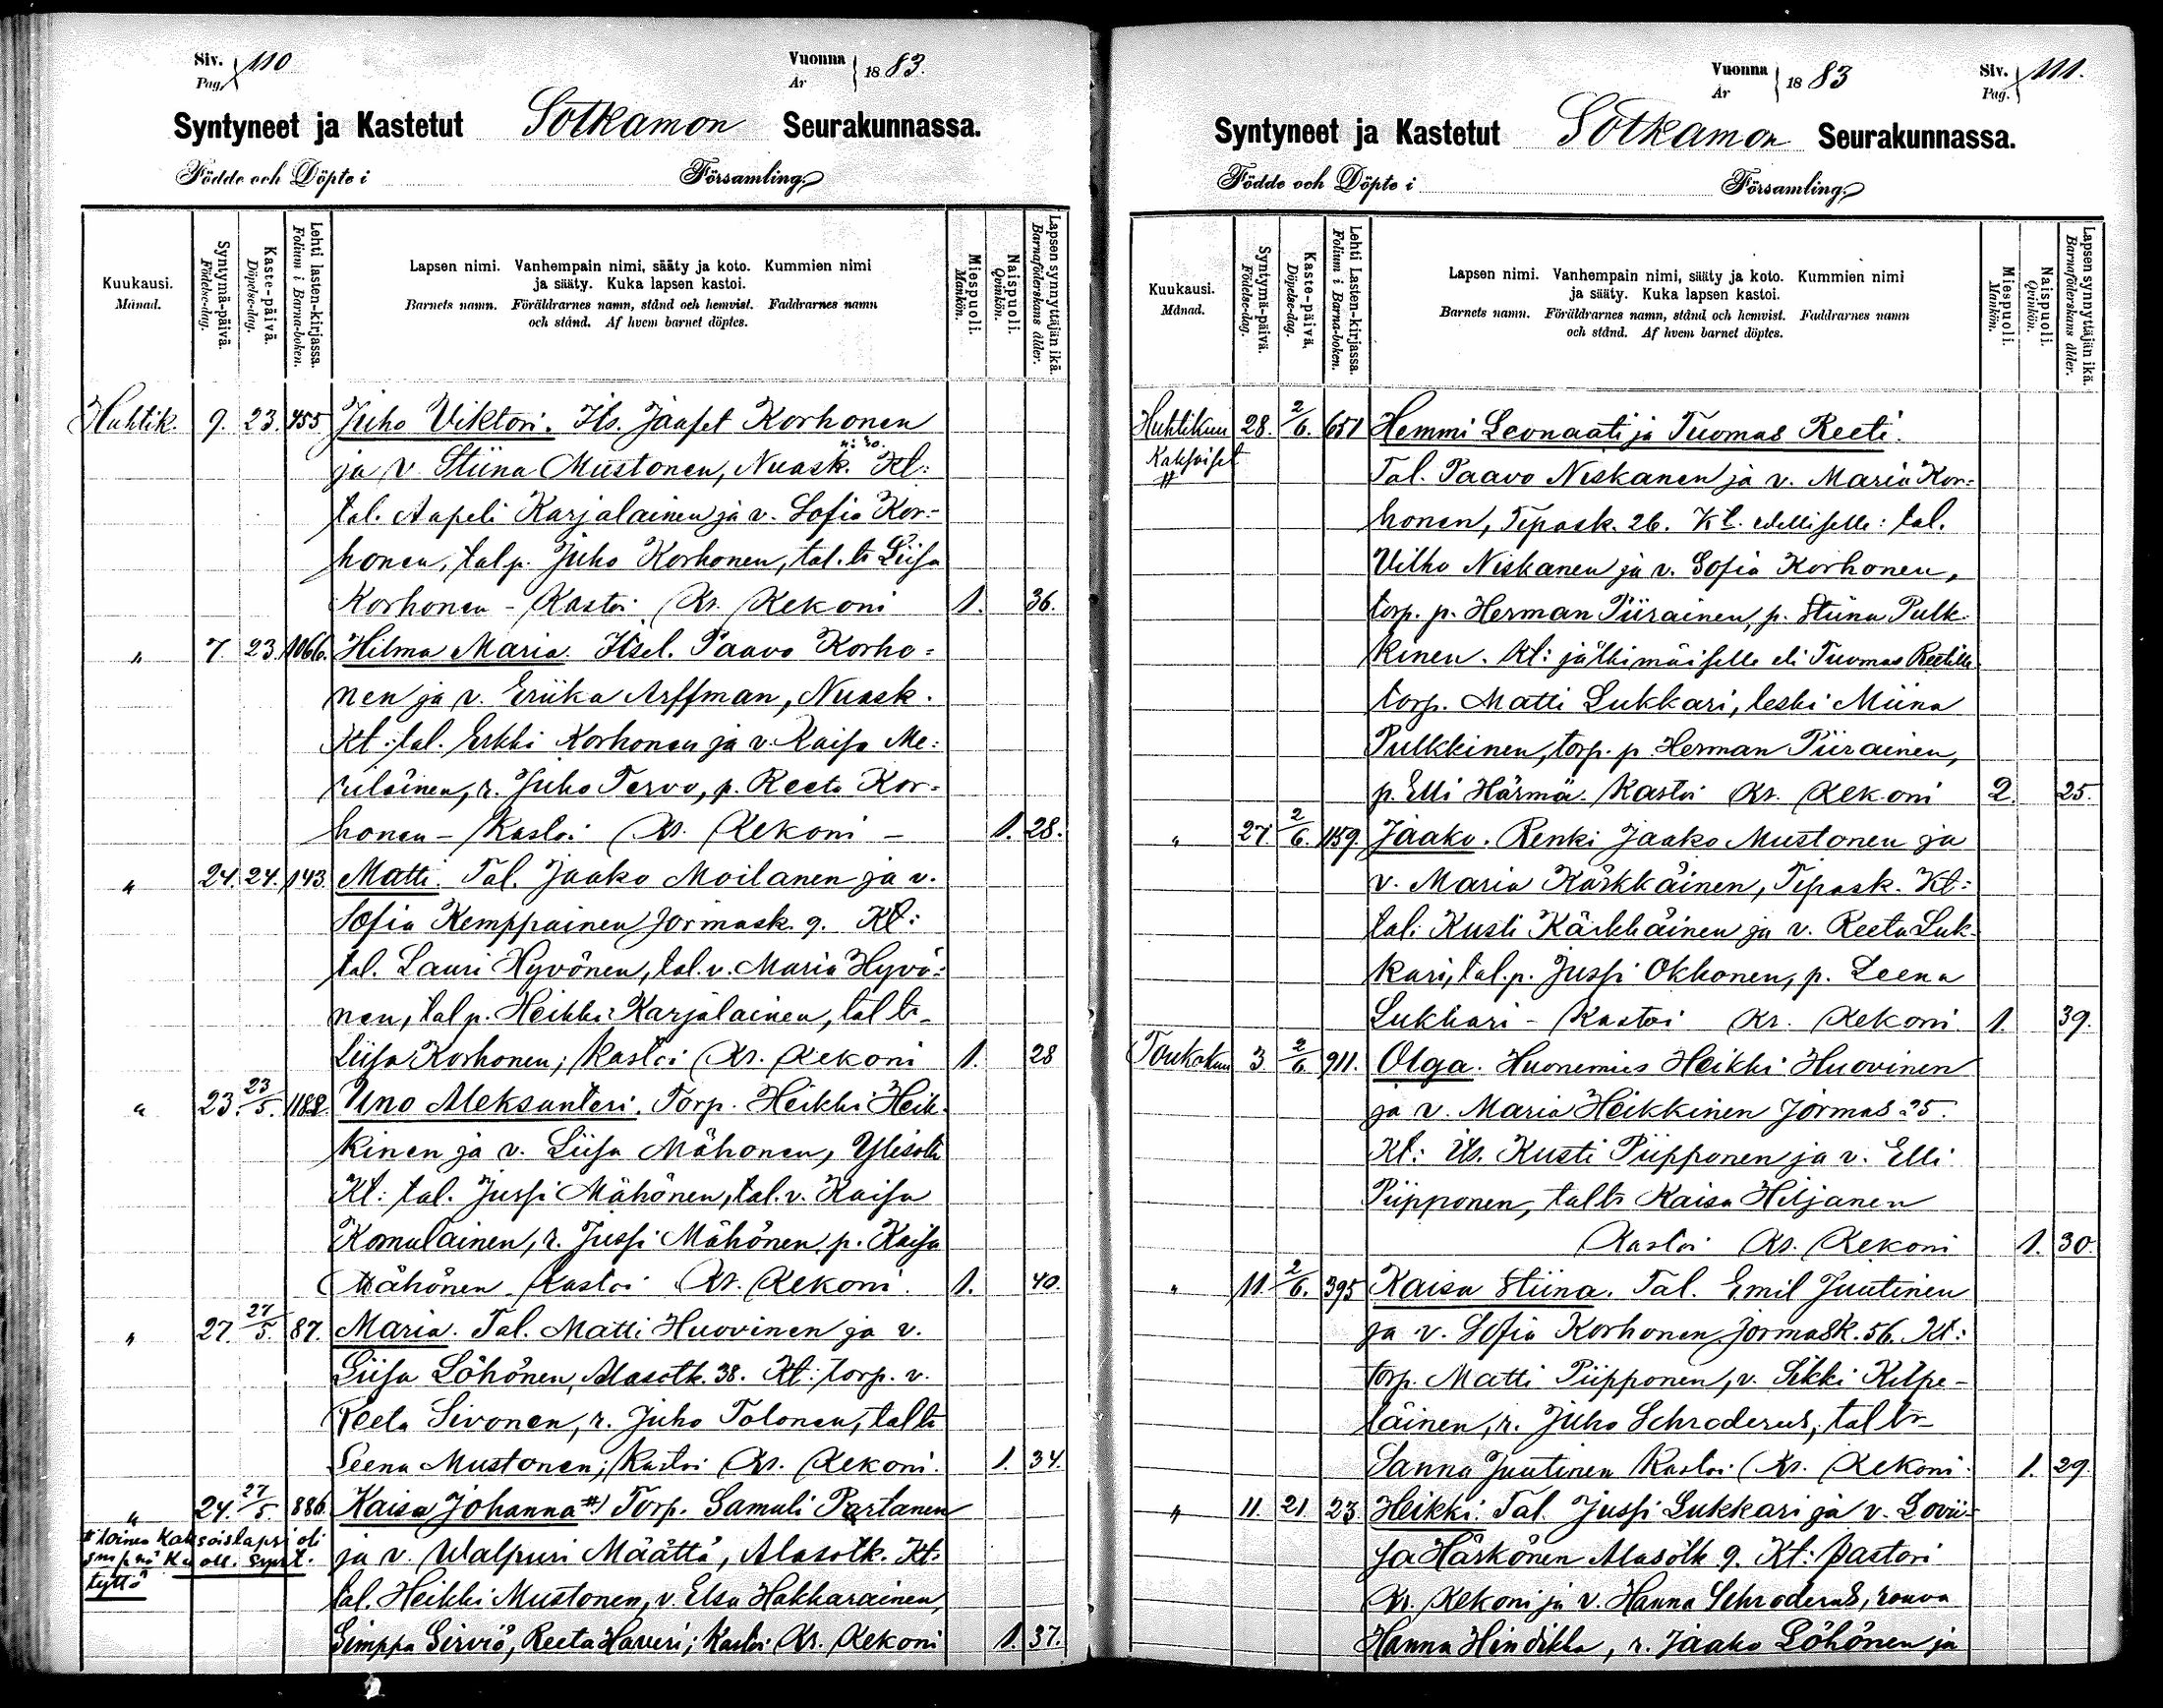 Siv. 110
Pag.
Vuonna 1883.
År
Syntyneet ja Kastetut Sotkamon Seurakunnassa.
Födde och Döpte i Församling.
Kuukausi.
Månad.
Syntymä-päivä.
Födelse-dag.
Kaste-päivä.
Döpelse-dag.
Lehti lasten-kirjassa.
Folium i Barna-boken.
Lapsen nimi. Vanhempain nimi, sääty ja koto. Kummien nimi
ja sääty. Kuka lapsen kastoi.
Barnets namn. Föräldrarnes namn, stånd och hemvist. Faddrarnes namn
och stånd. Af hvem barnet döptes.
Miespuoli.
Mankön.
Naispuoli.
Qvinkön.
Lapsen synnyttäjän ikä.
Barnaföderskans ålder.
Huhtik. 9. 23. 455 Juho Viktori. Its. Jaafet Korhonen
ja v. Stiina Mustonen, Nuask. n: 30. Kt:
tal. Aapeli Karjalainen ja v. Sofia Kor-
honen, tal. p. Juho Korhonen, tal. tr Liisa
Korhonen - Kastoi Kr. Kekoni 1. 36.
" 7. 23. 1066. Hilma Maria. Itsel. Paavo Korho=
nen ja v. Eriika Arffman, Nuask.
Kt: tal. Erkki Korhonen ja v. Kaisa Me=
riläinen, r. Juho Tervo, p. Reeta Kor=
honen - Kastoi Kr. Kekoni - 1. 28.
" 24. 24. 143 Matti. Tal. Jaako Moilanen ja v.
Sofia Kemppainen Jormask. 9. Kt:
tal. Lauri Hyvönen, tal. v. Maria Hyvö=
nen, tal p. Heikki Karjalainen, tal tr
Liisa Korhonen; Kastoi Kr. Kekoni 1. 28
" 23. 23/5. 1188. Uno Aleksanteri. Torp. Heikki Heik-
kinen ja v. Liisa Mähönen, Ylisotk
Kt: tal. Jussi Mähönen, tal. v. Kaisa
Komulainen, r. Jussi Mähönen, p. Kaisa
Mähönen Kastoi Kr. Kekoni. 1. 40.
" 27. 27/5. 87. Maria. Tal. Matti Huovinen ja v.
Liisa Löhönen, Alasotk. 38. Kt: torp. v.
Reeta Sivonen, r. Juho Tolonen, tal tr
Leena Mustonen; Kastoi Kr. Kekoni. 1. 34.
" 24. 27/5. 886. Kaisa Johanna #) Torp. Samuli Partanen
# toinen kaksoislapsi oli
Ku oll. synt.
tyttö
ja v. Walpuri Määttä, Alasotk. Kt:
tal. Heikki Mustonen, v. Elsa Hakkarainen,
Simppa Sirviö, Reeta Haveri; Kastoi Kr. Kekoni 1. 37.
Vuonna 1883
År
Siv. 111.
Pag.
Syntyneet ja Kastetut Sotkamon Seurakunnassa.
Födde och Döpte i Församling.
Kuukausi.
Månad.
Syntymä-päivä.
Födelse-dag.
Kaste-päivä.
Döpelse-dag.
Lehti Lasten-kirjassa.
Folium i Barna-boken.
Lapsen nimi. Vanhempain nimi, sääty ja koto. Kummien nimi
ja sääty. Kuka lapsen kastoi.
Barnets namn. Föräldrarnes namn, stånd och hemvist. Faddrarnes namn
och stånd. Af hvem barnet döptes.
Miespuoli.
Mankön.
Naispuoli.
Qvinkön.
Lapsen synnyttäjän ikä.
Barnaföderskans ålder.
Huhtikuu 28. 2/6. 651 Hemmi Leonaati ja Tuomas Reeti.
Kaksoiset
#
Tal. Paavo Niskanen ja v. Maria Kor=
honen, Tipask. 26. Kt. edelliselle: tal.
Vilho Niskanen ja v. Sofia Korhonen,
torp. p. Herman Piirainen, p. Stiina Pulk-
kinen. Kt: jälkimäiselle eli Tuomas Reetille
torp. Matti Lukkari, leski Miina
Pulkkinen, torp. p. Herman Piirainen,
p. Elli Härmä. Kastoi Kr. Kekoni 2. 25.
" 27. 2/6. 1159. Jaako. Renki Jaako Mustonen ja
v. Maria Kärkkäinen, Tipask. Kt:
tal. Kusti Kärkkäinen ja v. Reeta Luk-
kari, tal. p. Jussi Okkonen, p. Leena
Lukkari - Kastoi Kr. Kekoni 1. 39.
Toukokuu 3 2/6. 911. Olga. Huonemies Heikki Huovinen
ja v. Maria Heikkinen Jormas 25.
Kt: its. Kusti Piipponen ja v. Elli
Piipponen, tal tr Kaisa Hiljanen
Kastoi Kr. Kekoni 1. 30.
" 11. 2/6. 395 Kaisa Stiina. Tal. Emil Juutinen
ja v. Sofia Korhonen Jormask. 56. Kt:
torp. Matti Piipponen, v. Sikki Kilpe-
läinen, r. Juho Schroderus, tal tr
Sanna Juutinen Kastoi Kr. Kekoni. 1. 29.
" 11. 21. 23. Heikki. Tal. Jussi Lukkari ja v. Lovii-
sa Härkönen Alasotk 9. Kt: Pastori
Kr. Kekoni ja v. Hanna Schroderus, rouva
Hanna Hindikka, r. Jaako Löhönen ja